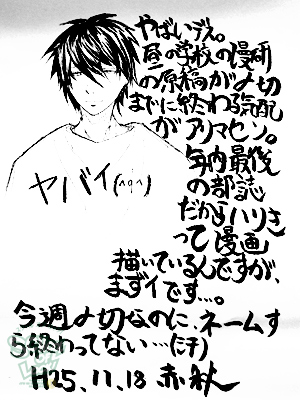 やばいデス。
昼の学校の漫研
の原稿が〆切
までに終わる気配
がアリマセン。
年内最後
の部誌
だからハリき
って漫画
描いているんですが、
まずイです…。
今週〆切なのに、ネームす
ら終わってない…(汗)
H25.11.18 赤秋
ヤバイ(^q^)